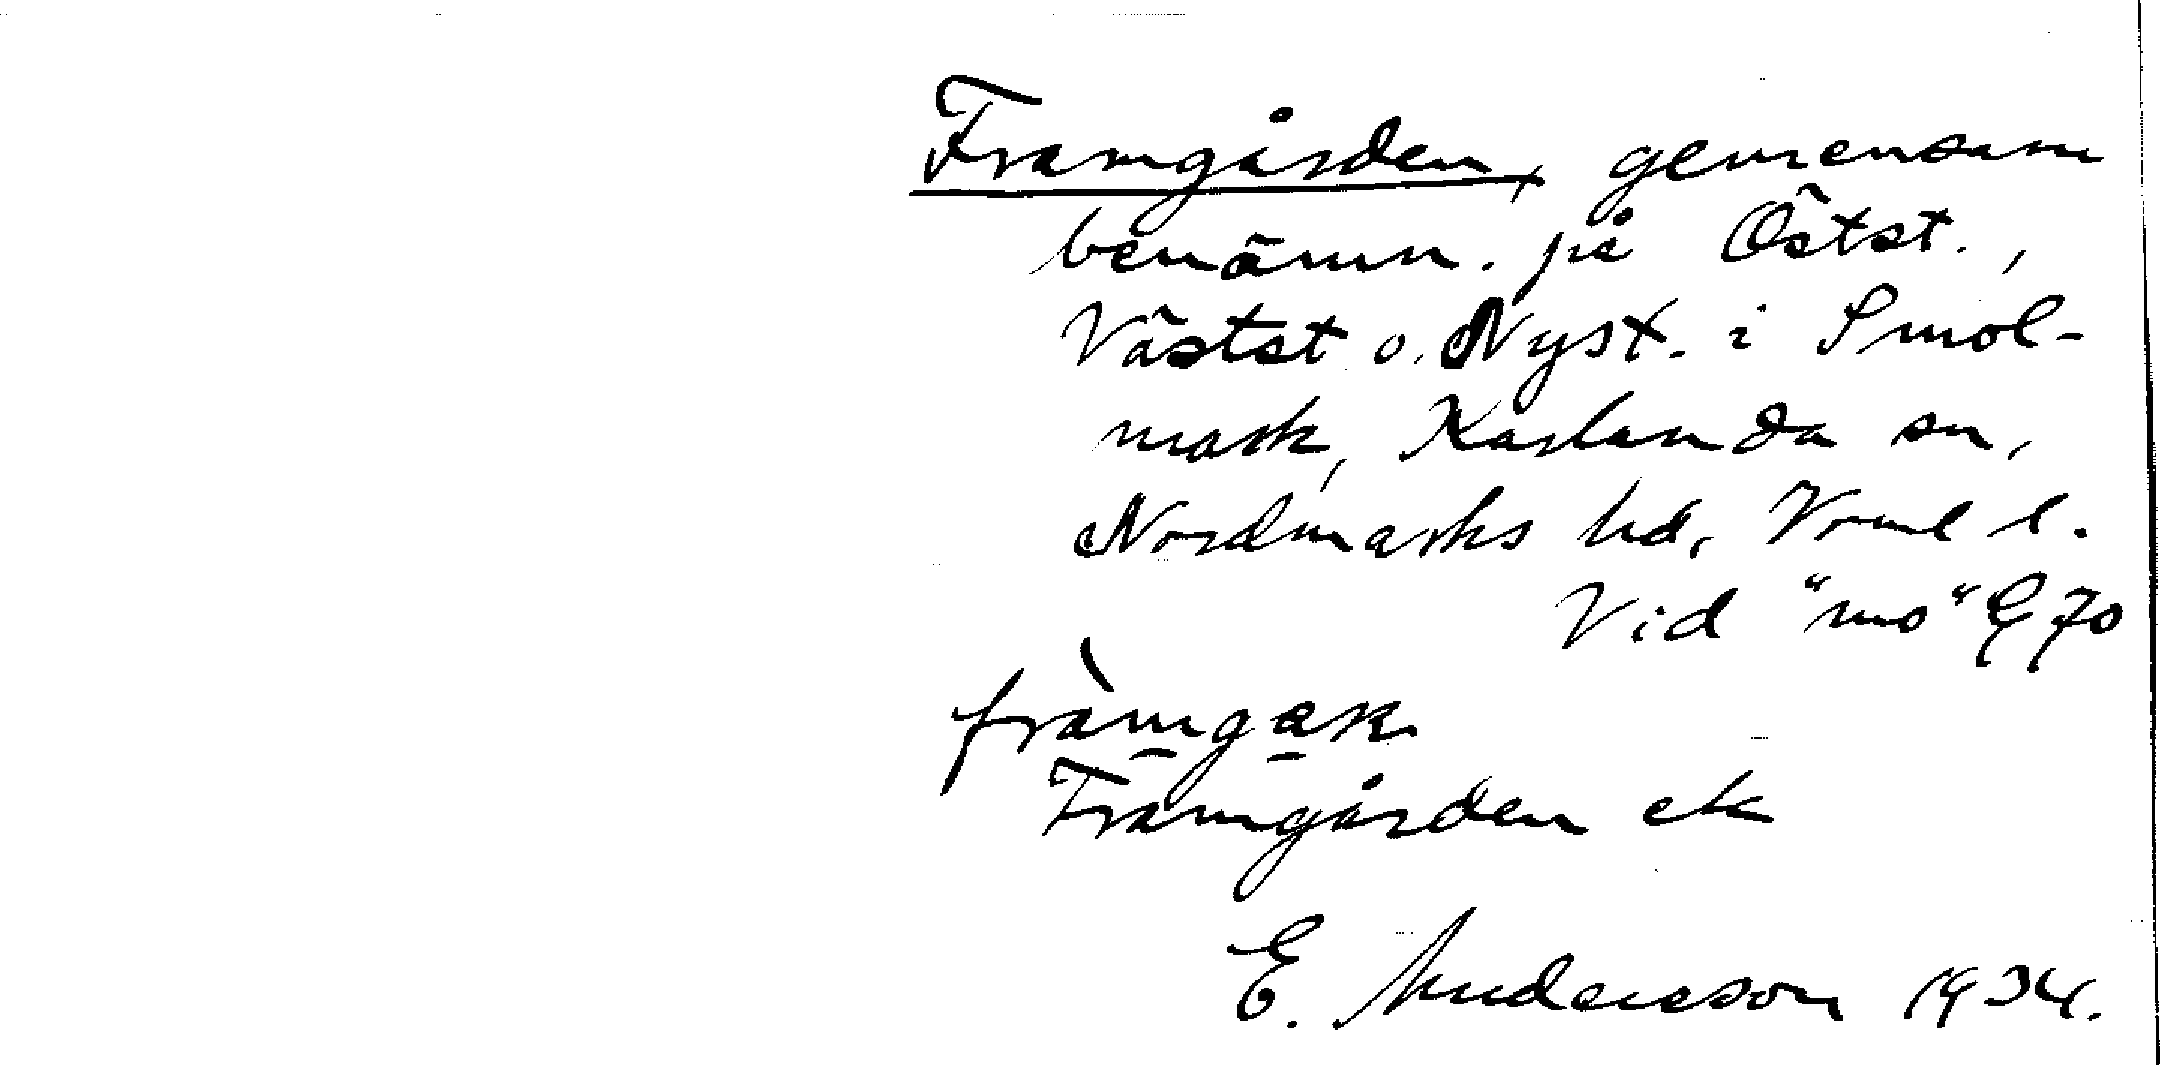 Framgården, gemensam
benämn. på Östst.,
Västst o. Nyst. i Smol-
mark, Karlanda sn,
Nordmarks hd, Vrml l.
Vid "mo" G 70
fràmgaṉ
Framgården ek
E. Andersson 1934.